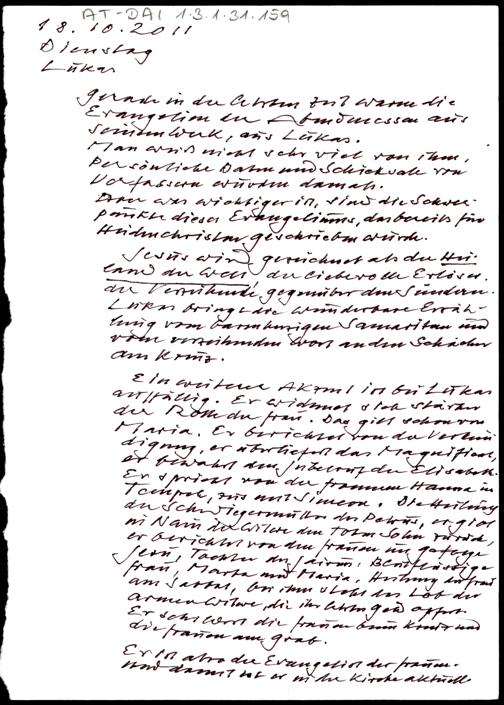 AT-DAI 1.3.1.31.159
18.10.2011
Dienstag
Lukas
Gerade in der letzten Zeit waren die
Evangelien der Abendmessen aus
seinem Werk, aus Lukas.
Man weiß nicht sehr viel von ihm,
persönliche Daten und Schicksale von
Verfassern wurden damals
was wichtiger ist, sind die Schwer-
punkte dieses Evangeliums, das bereits für
Heidenchristen geschrieben wurde.
Jesus wird gezeichnet als der Hei-
land der Welt, der liebevolle Erlöser,
der Verzeihende gegenüber den Sündern.
Lukas bringt die wunderbare Erzäh-
lung vom barmherzigen Samaritan und
vom verzeihenden Wort an den Schächer
am Kreuz.
Ein weiterer Akzent ist bei Lukas
auffällig. Er widmet sich stärker
der Rolle der Frau. Das gilt schon von
Maria. Er berichtet von der Verkün-
digung, er überliefert das Magnificat,
er bewahrt den Jubelruf der Elisabeth.
Er spricht von der frommen Hanna im
Tempel, mit Simeon. Die Heilung
der Schwiegermutter des Petrus, er gibt
in Nain der Witwe den toten Sohn zurück,
er berichtet von den Frauen im Gefolge
Jesu, Tochter des Jairus, Blutflüssige
Frau, Marta und Maria, Heilung der Frau
am Sabbat, bei ihm steht das Lob der
armen Witwe, die ihr opfert.
Er schildert die Frauen beim Kreuz und
die Frauen am Grab.
Er ist also der Evangelist der Frauen.
Und damit ist er in der Kirche aktuell